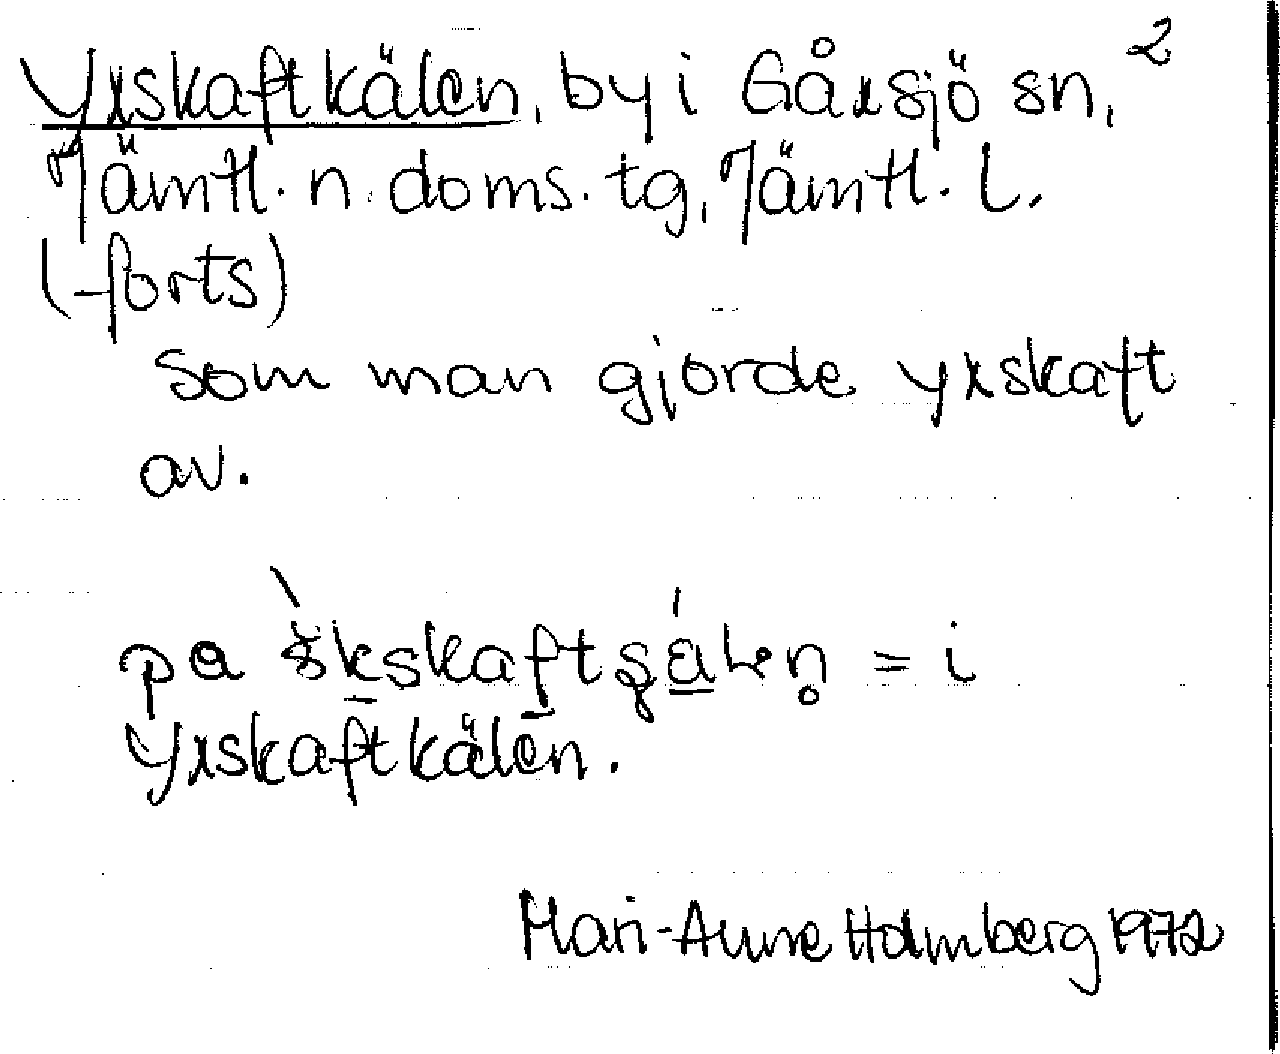 Yxskaftkälen, by i Gåxsjö sn, 2
Jämtl. n. doms. tg, Jämtl. L.
(-forts)
som man gjorde yxskaft
av.
pa = i
Yxskaftkälen.
Mari-Anne Holmberg 1972